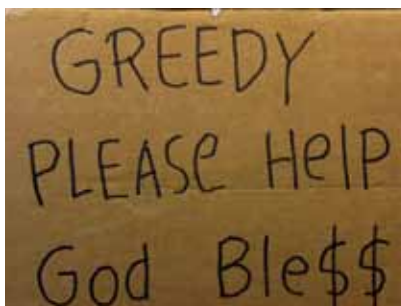 GREEDY
PLEASe HelP
God Ble$$